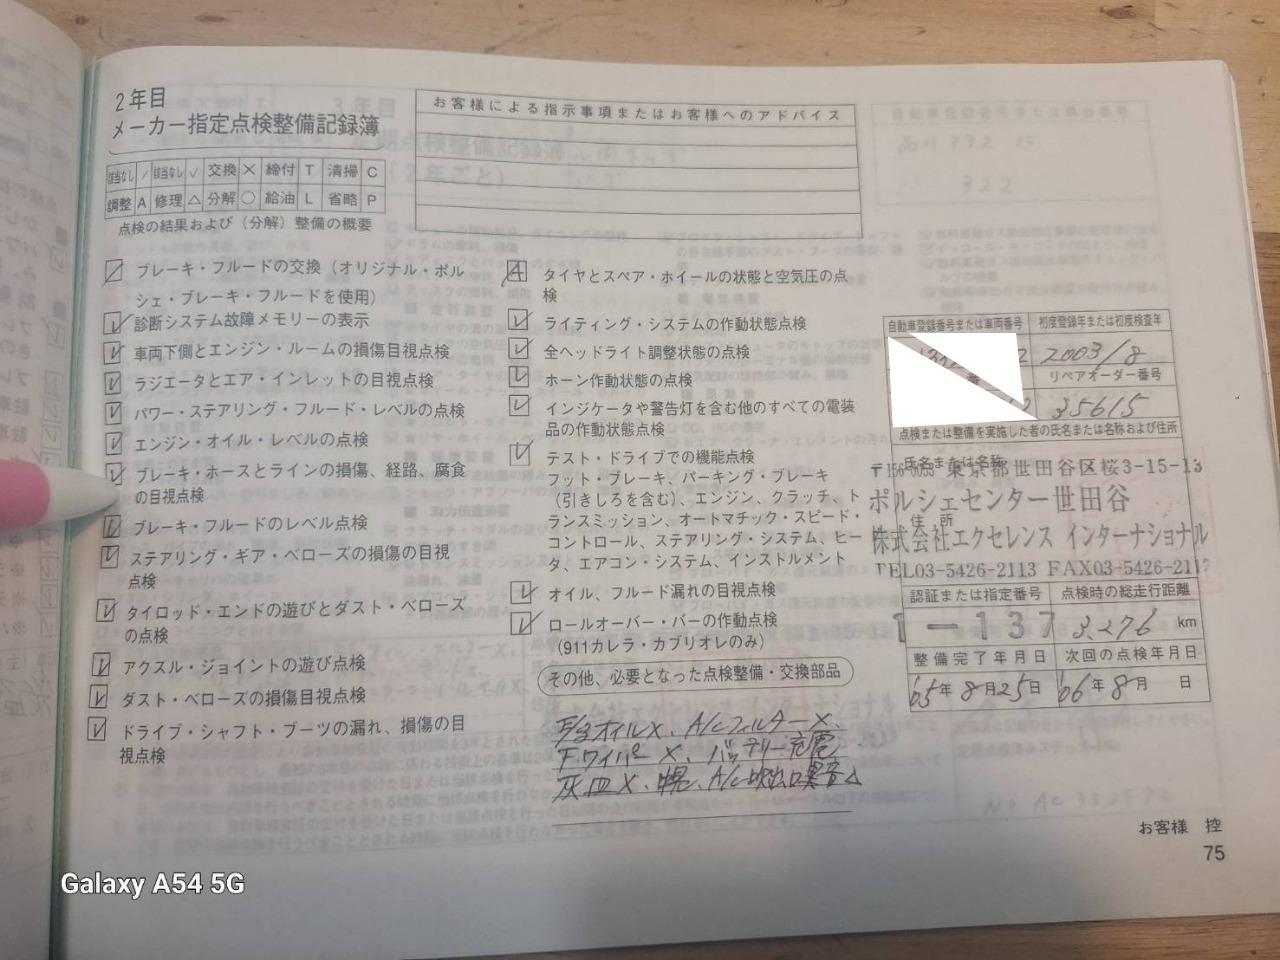 2年目
メーカー指定点検整備記録簿
該当なし / 該当なし ✓ 交換 × 締付 T 清掃 C
調整 A 修理 △ 分解 ○ 給油 L 省略 P
点検の結果および（分解）整備の概要
お客様による指示事項またはお客様へのアドバイス
ブレーキ・フルードの交換（オリジナル・ポル
シェ・ブレーキ・フルードを使用）
診断システム故障メモリーの表示
車両下側とエンジン・ルームの損傷目視点検
ラジエータとエア・インレットの目視点検
パワー・ステアリング・フルード・レベルの点検
エンジン・オイル・レベルの点検
ブレーキ・ホースとラインの損傷、経路、腐食
の目視点検
ブレーキ・フルードのレベル点検
ステアリング・ギア・ベローズの損傷の目視
点検
タイロッド・エンドの遊びとダスト・ベローズ
の点検
アクスル・ジョイントの遊び点検
ダスト・ベローズの損傷目視点検
ドライブ・シャフト・ブーツの漏れ、損傷の目
視点検
A タイヤとスペア・ホイールの状態と空気圧の点
検
ライティング・システムの作動状態点検
全ヘッドライト調整状態の点検
ホーン作動状態の点検
インジケータや警告灯を含む他のすべての電装
品の作動状態点検
テスト・ドライブでの機能点検
フット・ブレーキ、パーキング・ブレーキ
（引きしろを含む）、エンジン、クラッチ、ト
ランスミッション、オートマチック・スピード・
コントロール、ステアリング・システム、ヒー
タ、エアコン・システム、インストルメント
オイル、フルード漏れの目視点検
ロールオーバー・バーの作動点検
（911カレラ・カブリオレのみ）
その他、必要となった点検整備・交換部品
オイル×、A/Cフィルター×、
Fワイパー×、バッテリー充電
灰皿×、幌、A/C吹出口異音△
自動車登録番号または車両番号 初度登録年または初度検査年
2003/8
リペアオーダー番号
35615
点検または整備を実施した者の氏名または名称および住所
氏名または名称
東京都世田谷区桜3-15-13
ポルシェセンター世田谷
住所
株式会社エクセレンス インターナショナル
TEL03-5426-2113 FAX03-5426-211
認証または指定番号 点検時の総走行距離
1-137 3,276 km
整備完了年月日 次回の点検年月日
'05年8月25日 '06年8月 日
お客様 控
75
Galaxy A54 5G